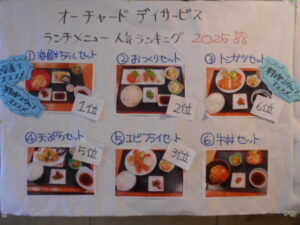 オーチャード デイサービス
ランチメニュー 人気ランキング 2025
① 海鮮ちらしセット
② おつくりセット
③ トンカツセット
1位
2位
6位
④ 天ぷらセット
⑤ エビフライセット
⑥ 牛丼セット
5位
3位